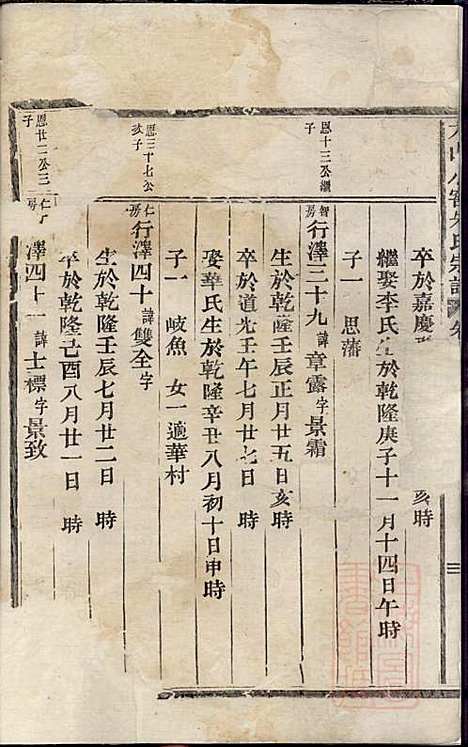 氏宗譜
卒於嘉慶 亥時
繼娶李氏生於乾隆庚子十一月十四日午時
子一 思藩
恩十三公繼子
智房 行澤三十九 諱章露字景霜
生於乾隆壬辰正月廿五日亥時
卒於道光壬午七月廿七日 時
娶華氏生於乾隆辛丑八月初十日申時
子一 岐魚 女一適華村
恩三十七公次子
仁房 行澤四十 諱雙全字
生於乾隆壬辰七月廿二日 時
卒於乾隆己酉八月廿一日 時
恩廿二公三子
仁房 行澤四十一 諱士標字景致